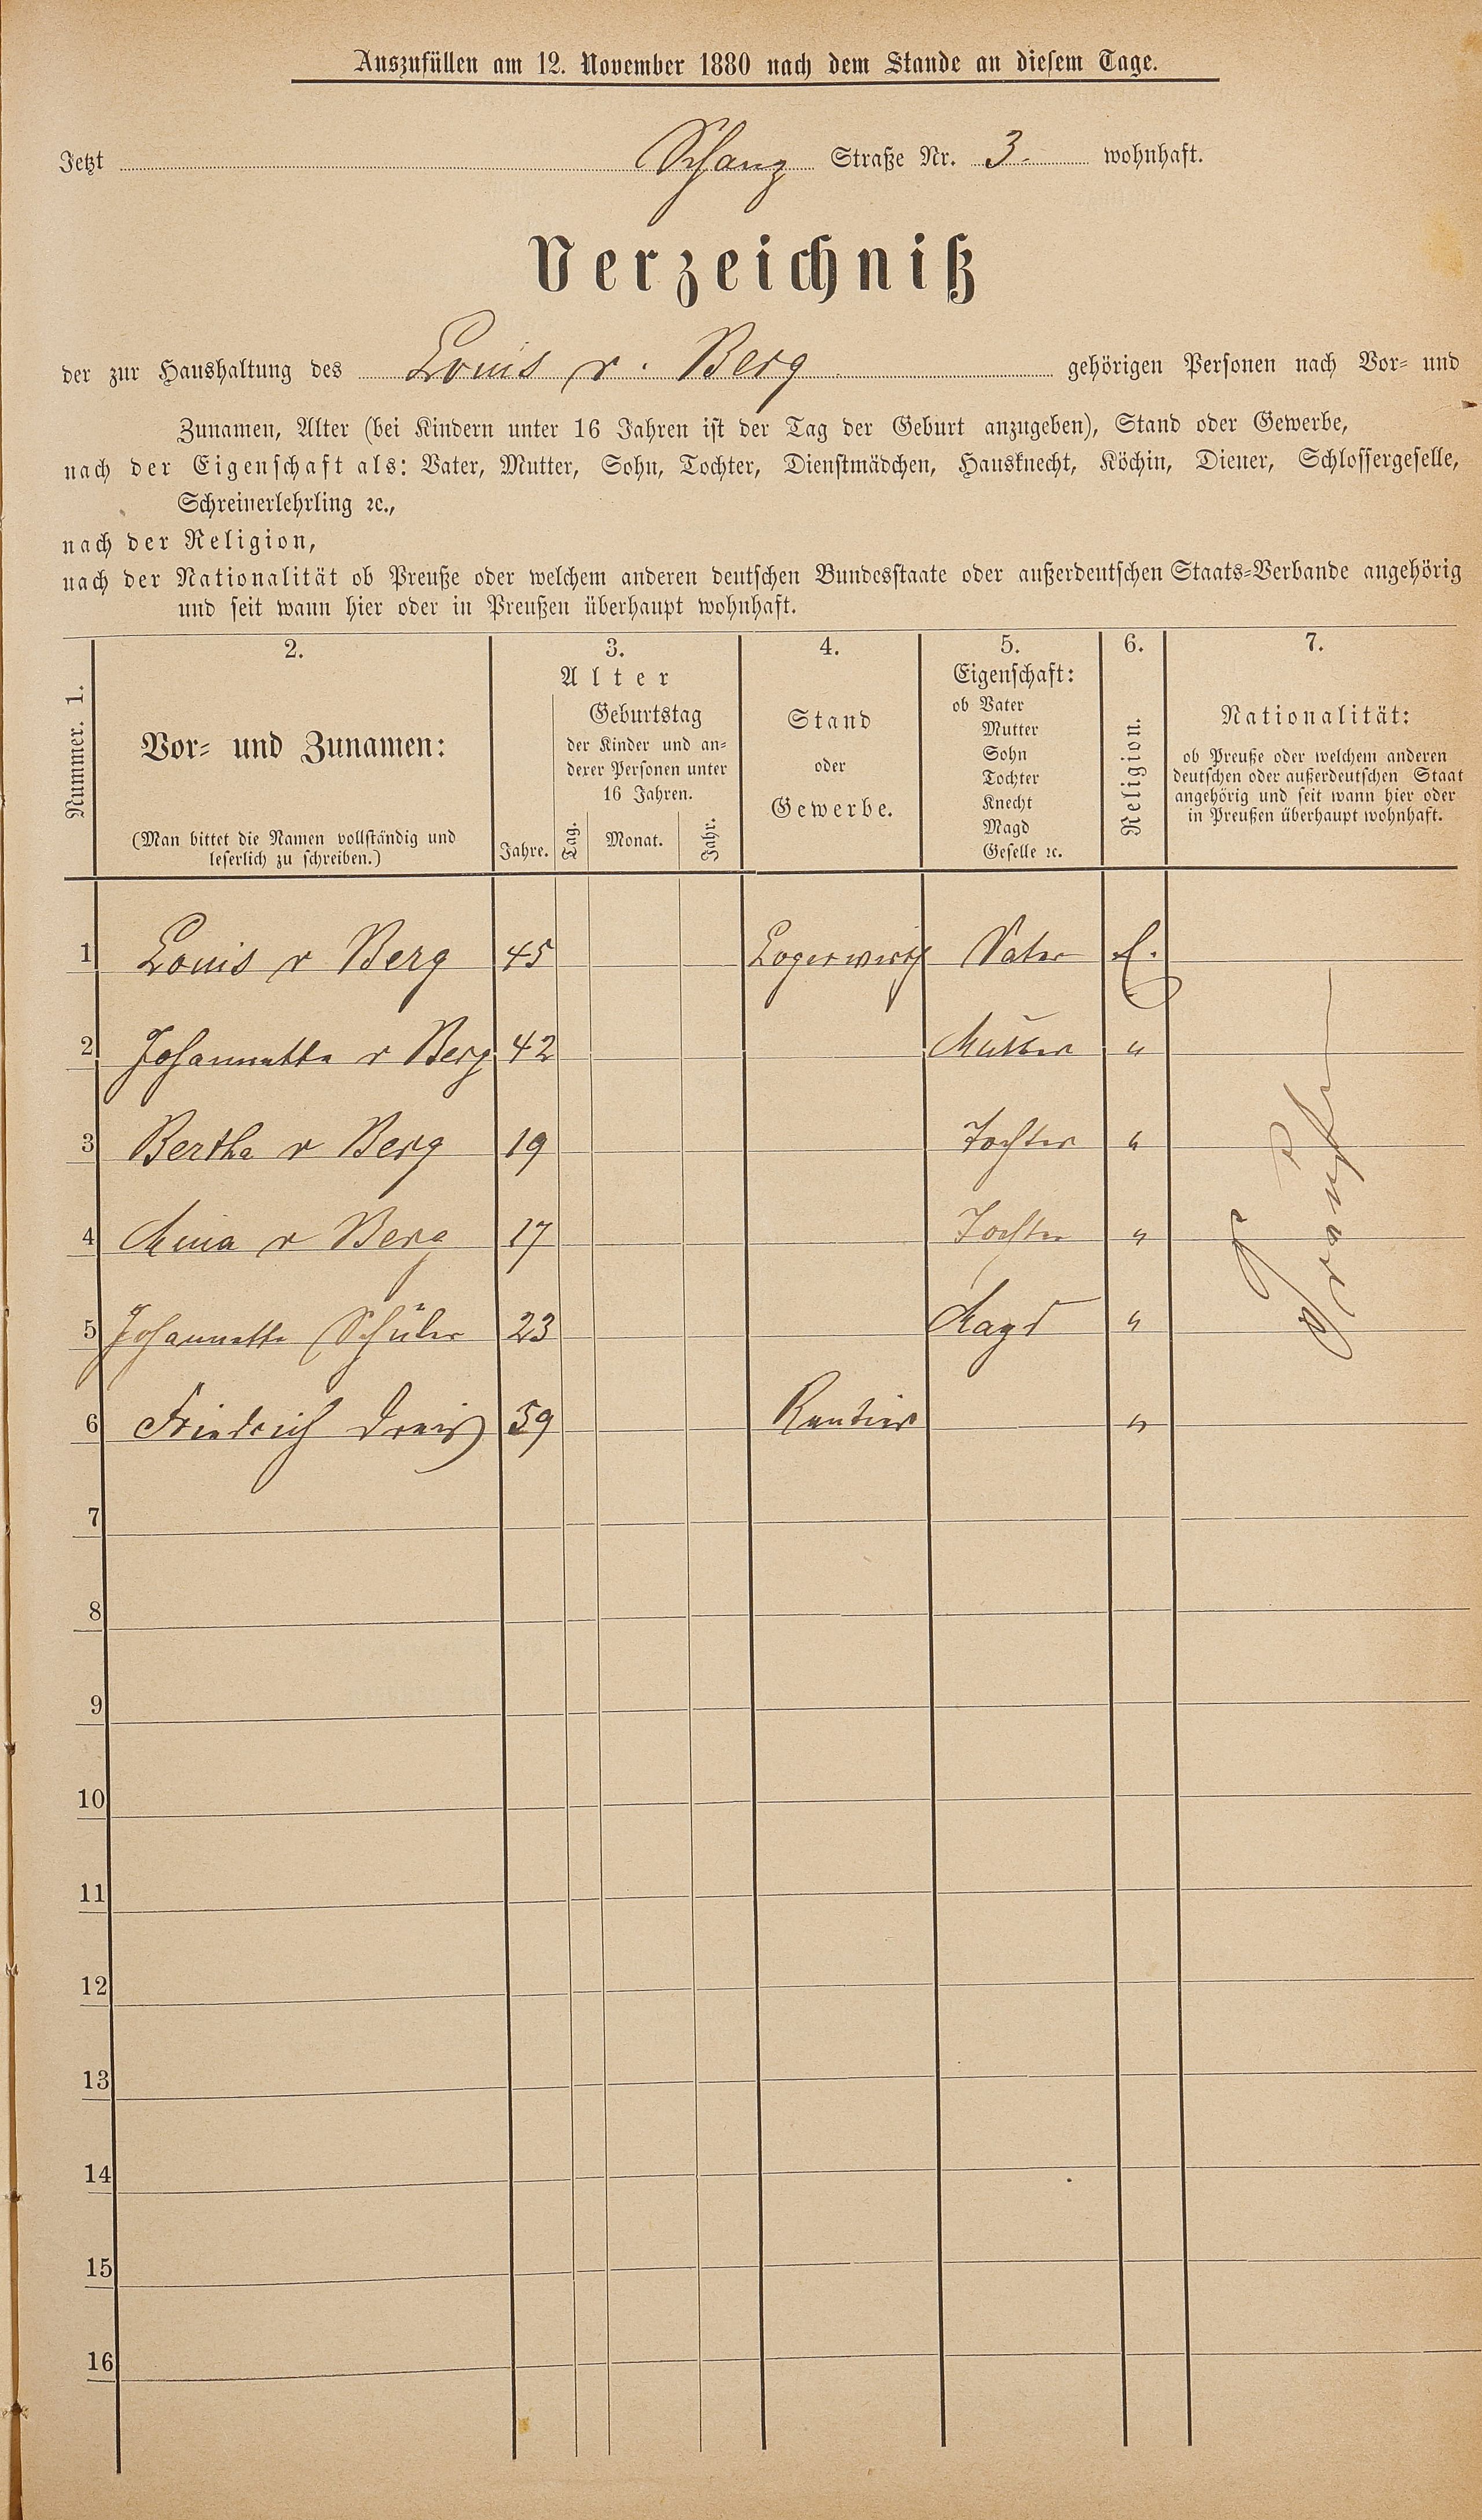 Auszufüllen am 12. November 1880 nach dem Stande an diesem Tage.
Jetzt Schanz Straße Nr. 3. wohnhaft.
Verzeichniß
der zur Haushaltung des Louis v. Berg gehörigen Personen nach Vor- und
Zunamen, Alter (bei Kindern unter 16 Jahren ist der Tag der Geburt anzugeben), Stand oder Gewerbe,
nach der Eigenschaft als: Vater, Mutter, Sohn, Tochter, Dienstmädchen, Hausknecht, Köchin, Diener, Schlossergeselle,
Schreinerlehrling ꝛc.,
nach der Religion,
nach der Nationalität ob Preuße oder welchem anderen deutschen Bundesstaate oder außerdeutschen Staats-Verbande angehörig
und seit wann hier oder in Preußen überhaupt wohnhaft.
Nummer. 1.
2.
Vor- und Zunamen:
(Man bittet die Namen vollständig und
leserlich zu schreiben.)
3.
Alter
Jahre.
Geburtstag
der Kinder und an-
derer Personen unter
16 Jahren.
Tag. Monat. Jahr.
4.
Stand
oder
Gewerbe.
5.
Eigenschaft:
ob Vater
Mutter
Sohn
Tochter
Knecht
Magd
Geselle ꝛc.
6.
Religion.
7.
Nationalität:
ob Preuße oder welchem anderen
deutschen oder außerdeutschen Staat
angehörig und seit wann hier oder
in Preußen überhaupt wohnhaft.
1 Louis v Berg 45 Logerwirth Vater E.
2 Johannette v Berg 42 Mutter "
3 Bertha v Berg 19 Tochter "
4 Mina v Berg 17 Tochter "
5 Johannette Schüler 23 Magd "
6 Friedrich Dreis 59 Rentier "
7
8
9
10
11
12
13
14
15
16